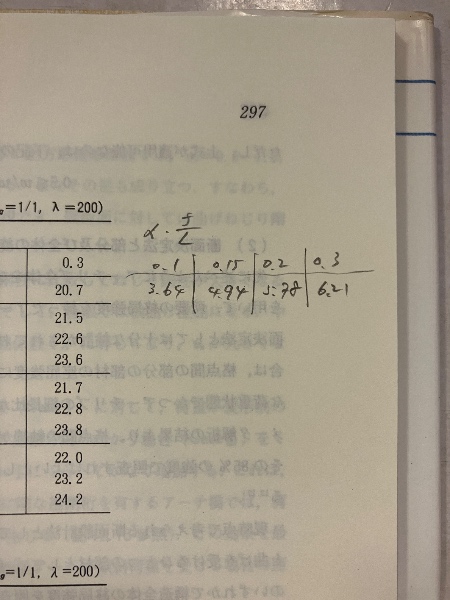 297
=1/1, λ=200)
α・f/L
0.1 0.15 0.2 0.3
3.64 4.94 5.78 6.21
0.3
20.7
21.5
22.6
23.6
21.7
22.8
23.8
22.0
23.2
24.2
=1/1, λ=200)